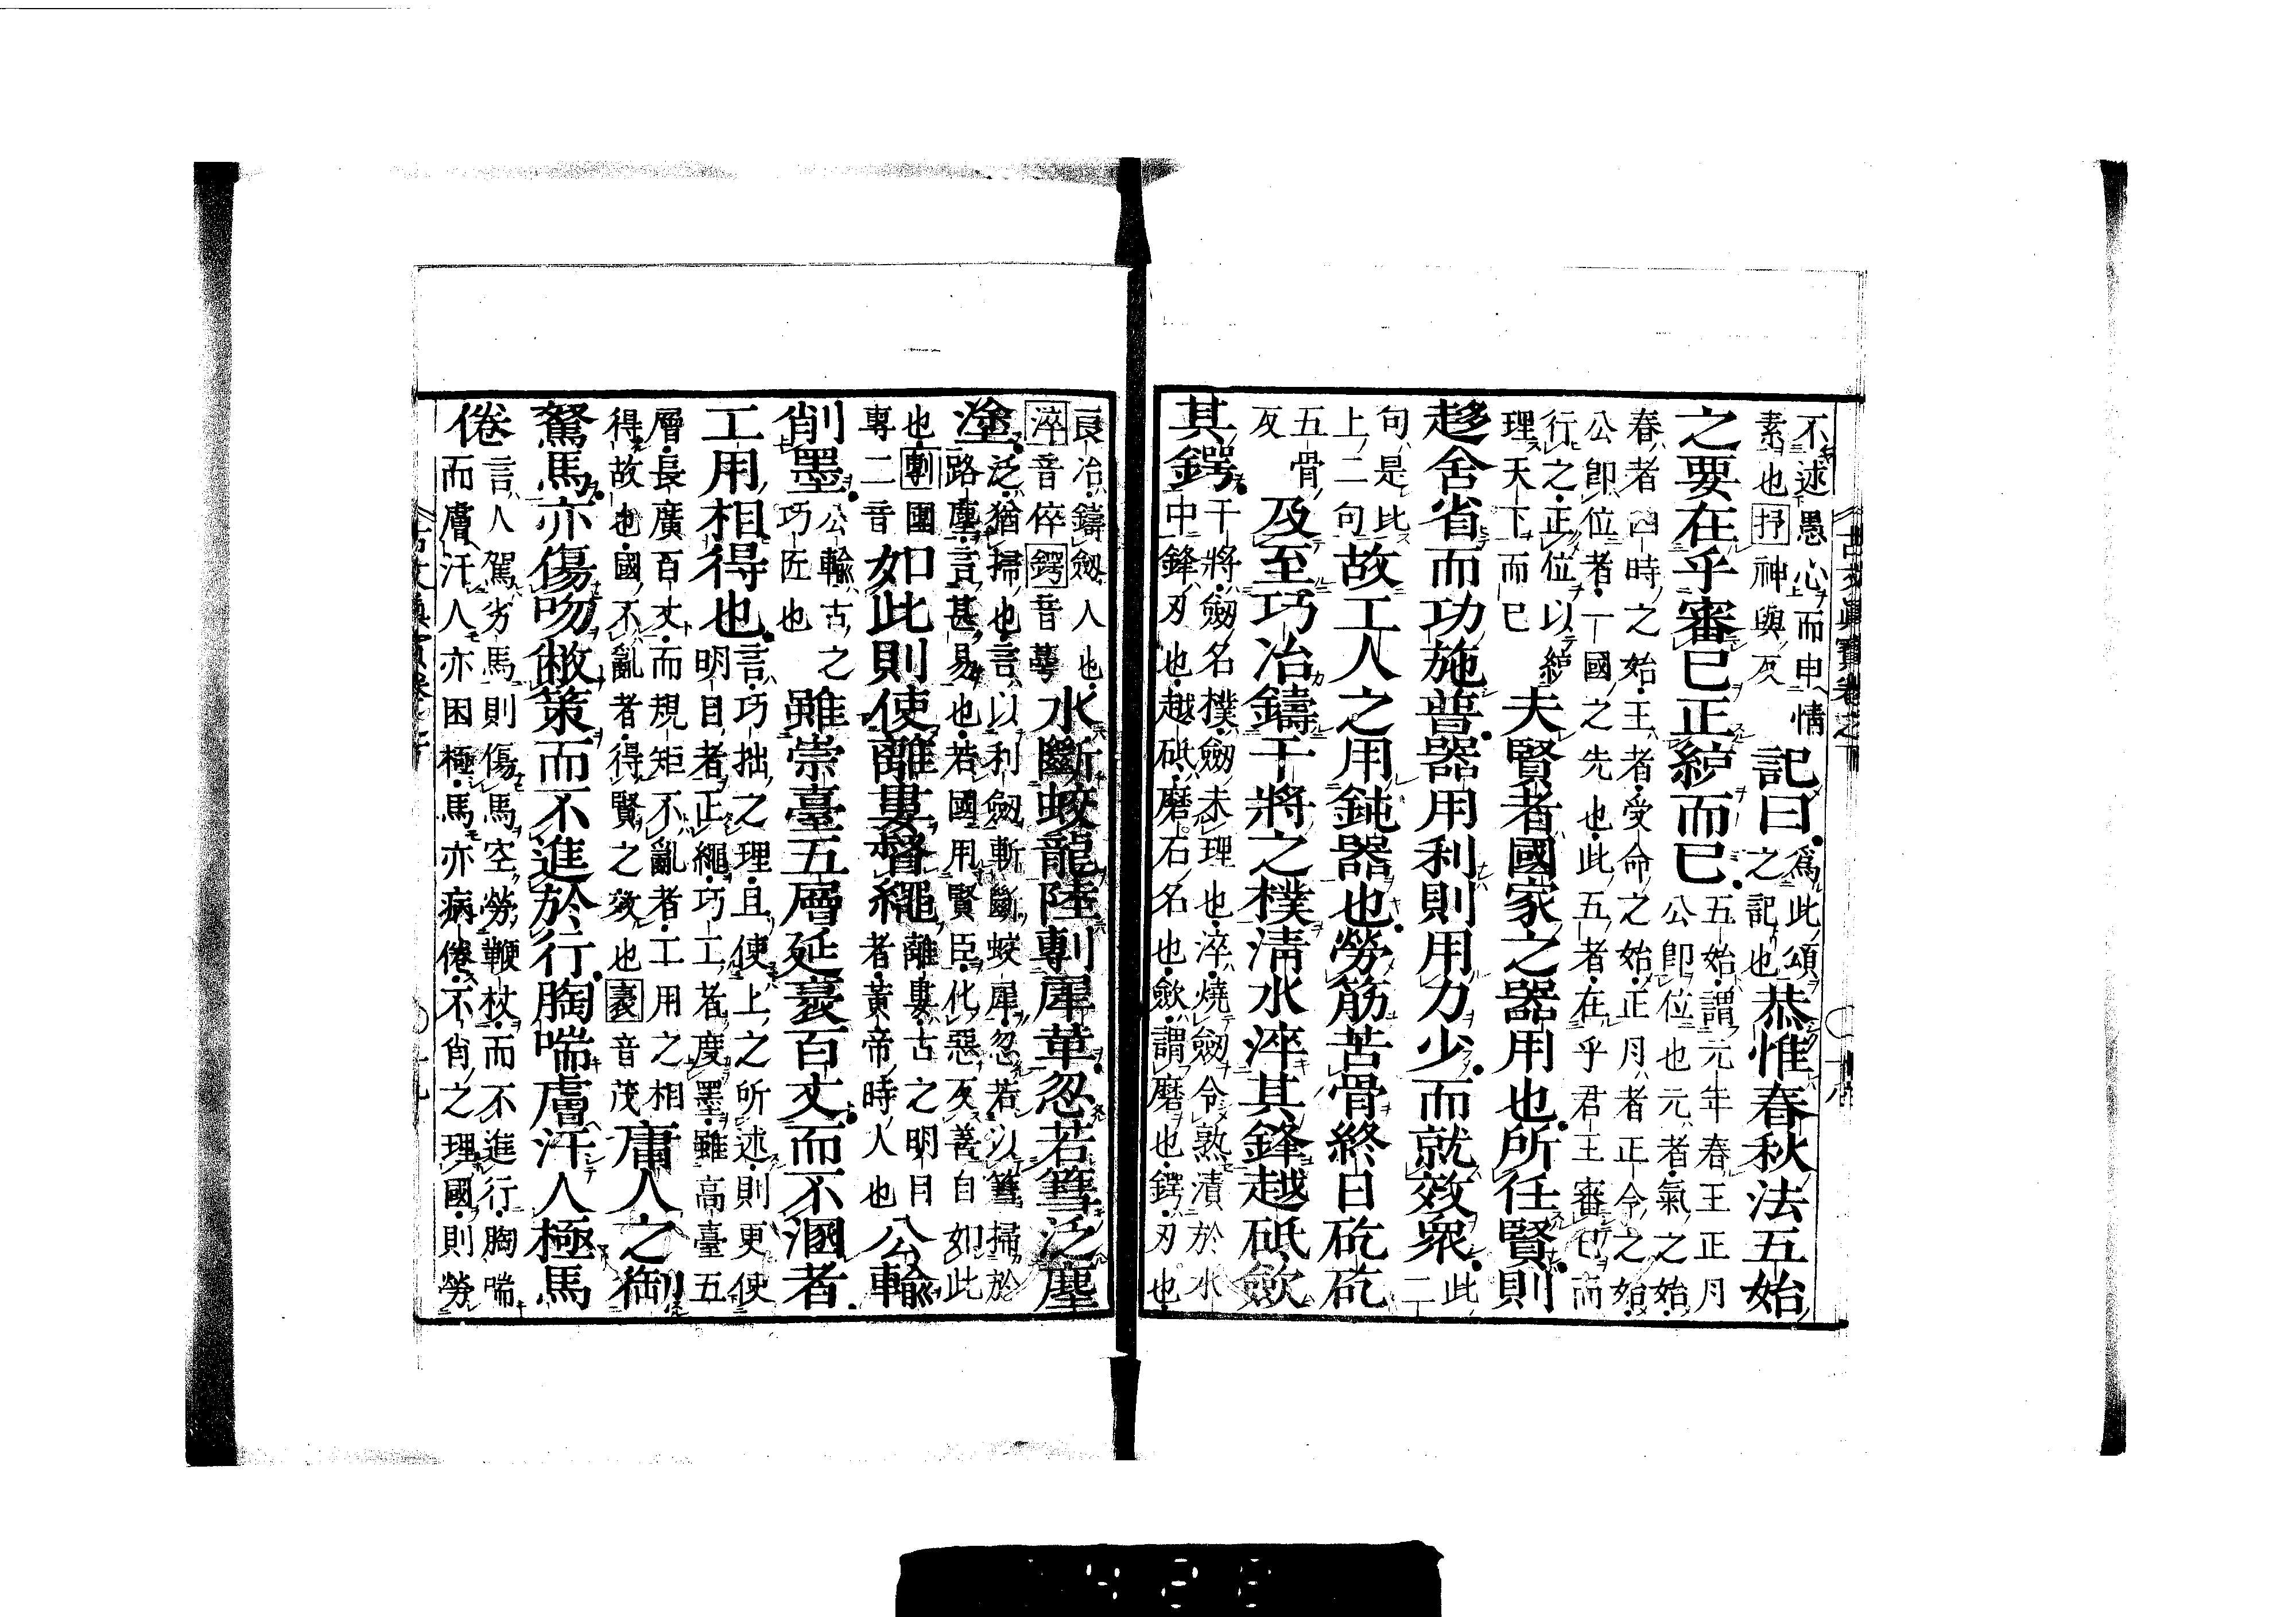 不述愚心而申情
素也抒神與反
記曰
爲此頌
之記也
恭惟春秋法五始
之要在乎審已正綂而已
五始謂元年春王正月
公卽位也元者氣之始
春者四時之始王者受命之始正月者正令之始
公卽位者一國之先也此五者在乎君王審已而
行之正位以綂
理天下而已
夫賢者國家之器用也所任賢則
趍舍省而功施普器用利則用力少而就效衆
此二
句是比
上二句
故工人之用鈍器也勞筋苦骨終日矻矻
五骨
反
及至巧冶鑄干將之樸清水淬其鋒越砥歛
其鍔
干將劔名樸劔未理也淬燒劔令熟漬於水
中鋒刃也越砥磨石名也歛謂磨也鍔刃也
良冶鑄劔人也
淬音倅鍔音萼
水斷蛟龍陸剸犀革忽若篲泛塵
塗
泛猶掃也言以利劔斬斷蛟犀忽若以篲掃於
路塵言甚易也若國用賢臣化惡反善自如此
也剸團
專二音
如此則使離婁督繩
離婁古之明目
者黃帝時人也
公輸
削墨
公輸古之
巧匠也
雖崇臺五層延袤百丈而不溷者
工用相得也
言巧拙之理且使上之所述則更使
明目者正繩巧工者度墨雖高臺五
層長廣百丈而規矩不亂者工用之相
得故也國不亂者得賢之效也袤音茂
庸人之御
駑馬亦傷吻敝策而不進於行胸喘膚汗人極馬
倦
言人駕劣馬則傷馬空勞鞭杖而不進行胸喘
而膚汗人亦困極馬亦病倦不肖之理國則勞